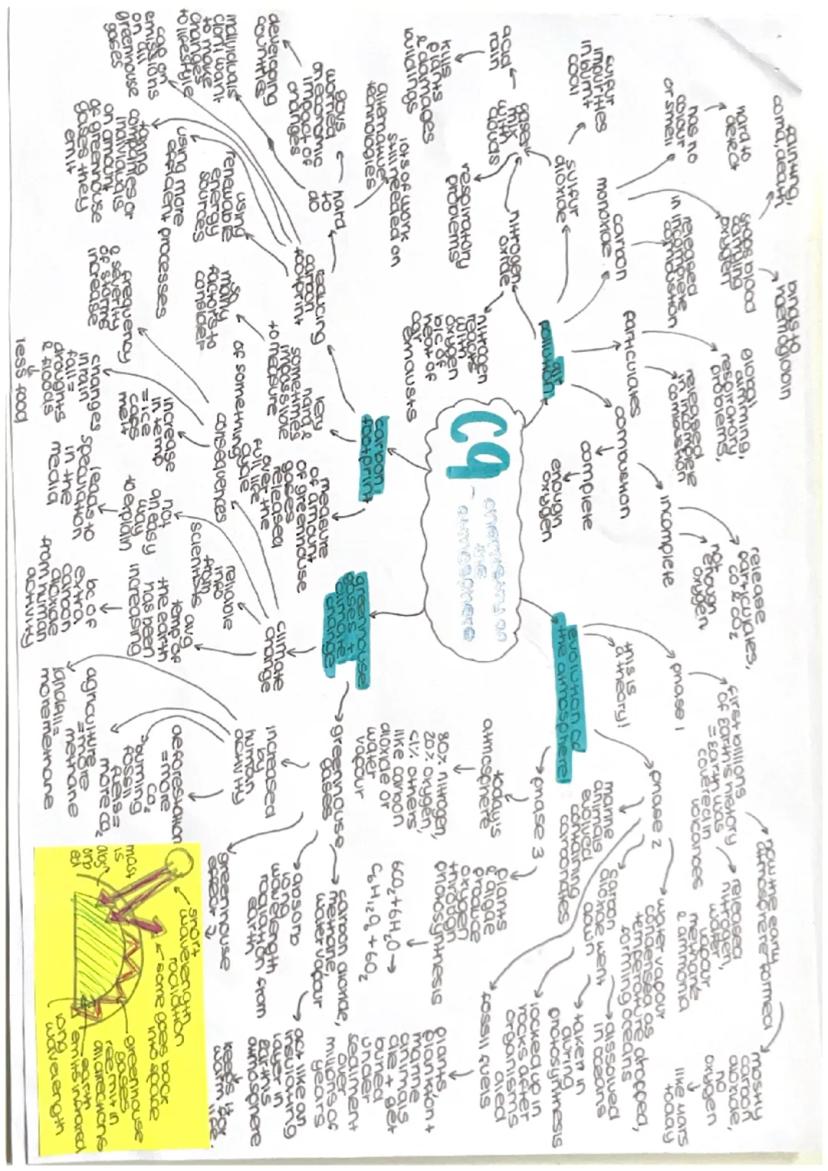 C9
- chemistry of
the
atmosphere
air
pollution
carbon
monoxide
has no
colour
or smell
hard to
detect
released
in incomplete
combustion
stops blood
carrying
oxygen
fainting,
coma, death
binds to
haemoglobin
sulfur
dioxide
sulfur
impurities
in burnt
coal
gases
mix
with
clouds
acid
rain
kills
plants
& damages
buildings
respiratory
problems
nitrogen
oxide
nitrogen
reacts
with
oxygen
b/c of
heat of
car
exhausts
particulates
global
dimming,
respiratory
problems
released
in incomplete
combustion
combustion
complete
enough
oxygen
incomplete
not enough
oxygen
release
particulates,
CO & CO2
evolution of
the atmosphere
this is
a theory!
phase 1
first billions
of Earth's history
= Earth was
covered in
volcanoes
released
nitrogen,
water
vapour
methane
& ammonia
how the early
atmosphere formed
mostly
carbon
dioxide,
no
oxygen
like Mars
today
phase 2
water vapour
condensed as
temperature dropped,
forming oceans
carbon
dioxide went
down
dissolved
in oceans
taken in
during
photosynthesis
locked up in
rocks after
organisms
died
marine
animals
evolved
containing
carbonates
fossil fuels
plants,
plankton +
marine
animals
die + get
buried
under
sediment
over
millions of
years
phase 3
plants
& algae
produce
oxygen
through
photosynthesis
6CO2 + 6H2O →
C6H12O6 + 6O2
today's
atmosphere
80% nitrogen,
20% oxygen,
<1% others
like carbon
dioxide or
water
vapour
carbon
footprint
measure
of amount
of greenhouse
gases
released
over the
full life
cycle
of something
very
hard &
sometimes
impossible
to measure
so
many
factors to
consider
reducing
carbon
footprint
hard
to
do
lots of work
still needed on
alternative
technologies
govs
worried
on economic
impact of
changes
developing
countries
individuals
don't want
to make
changes
to lifestyle
cap on
emissions
on all
greenhouse
gases
taxing
companies or
individuals
on amount
of greenhouse
gases they
emit
using more
efficient processes
using
renewable
energy
sources
greenhouse
gases +
climate
change
climate
change
consequences
frequency
& severity
of storms
increase
changes
in rain
fall =
droughts
& floods
less food
increase
in temp
= ice
caps
melt
reliable
info
from
scientists
not
an easy
way
to explain
leads to
speculation
in the
media
avg
temp of
the earth
has been
increasing
bc of
extra
carbon
dioxide
from human
activity
greenhouse
gases
carbon dioxide,
methane,
water vapour
absorb
long
wavelength
radiation from
earth
act like an
insulating
layer in
Earth's
atmosphere
keeps it
warm
greenhouse
effect
increased
by
human
activity
deforestation
= more
CO2
burning
fossil
fuels =
more CO2
agriculture
= more
methane
landfill =
more methane
short
wavelength
radiation
some goes back
into space
greenhouse
gases
re-emit in
all directions
earth
emits infrared
long
wavelength
most
is